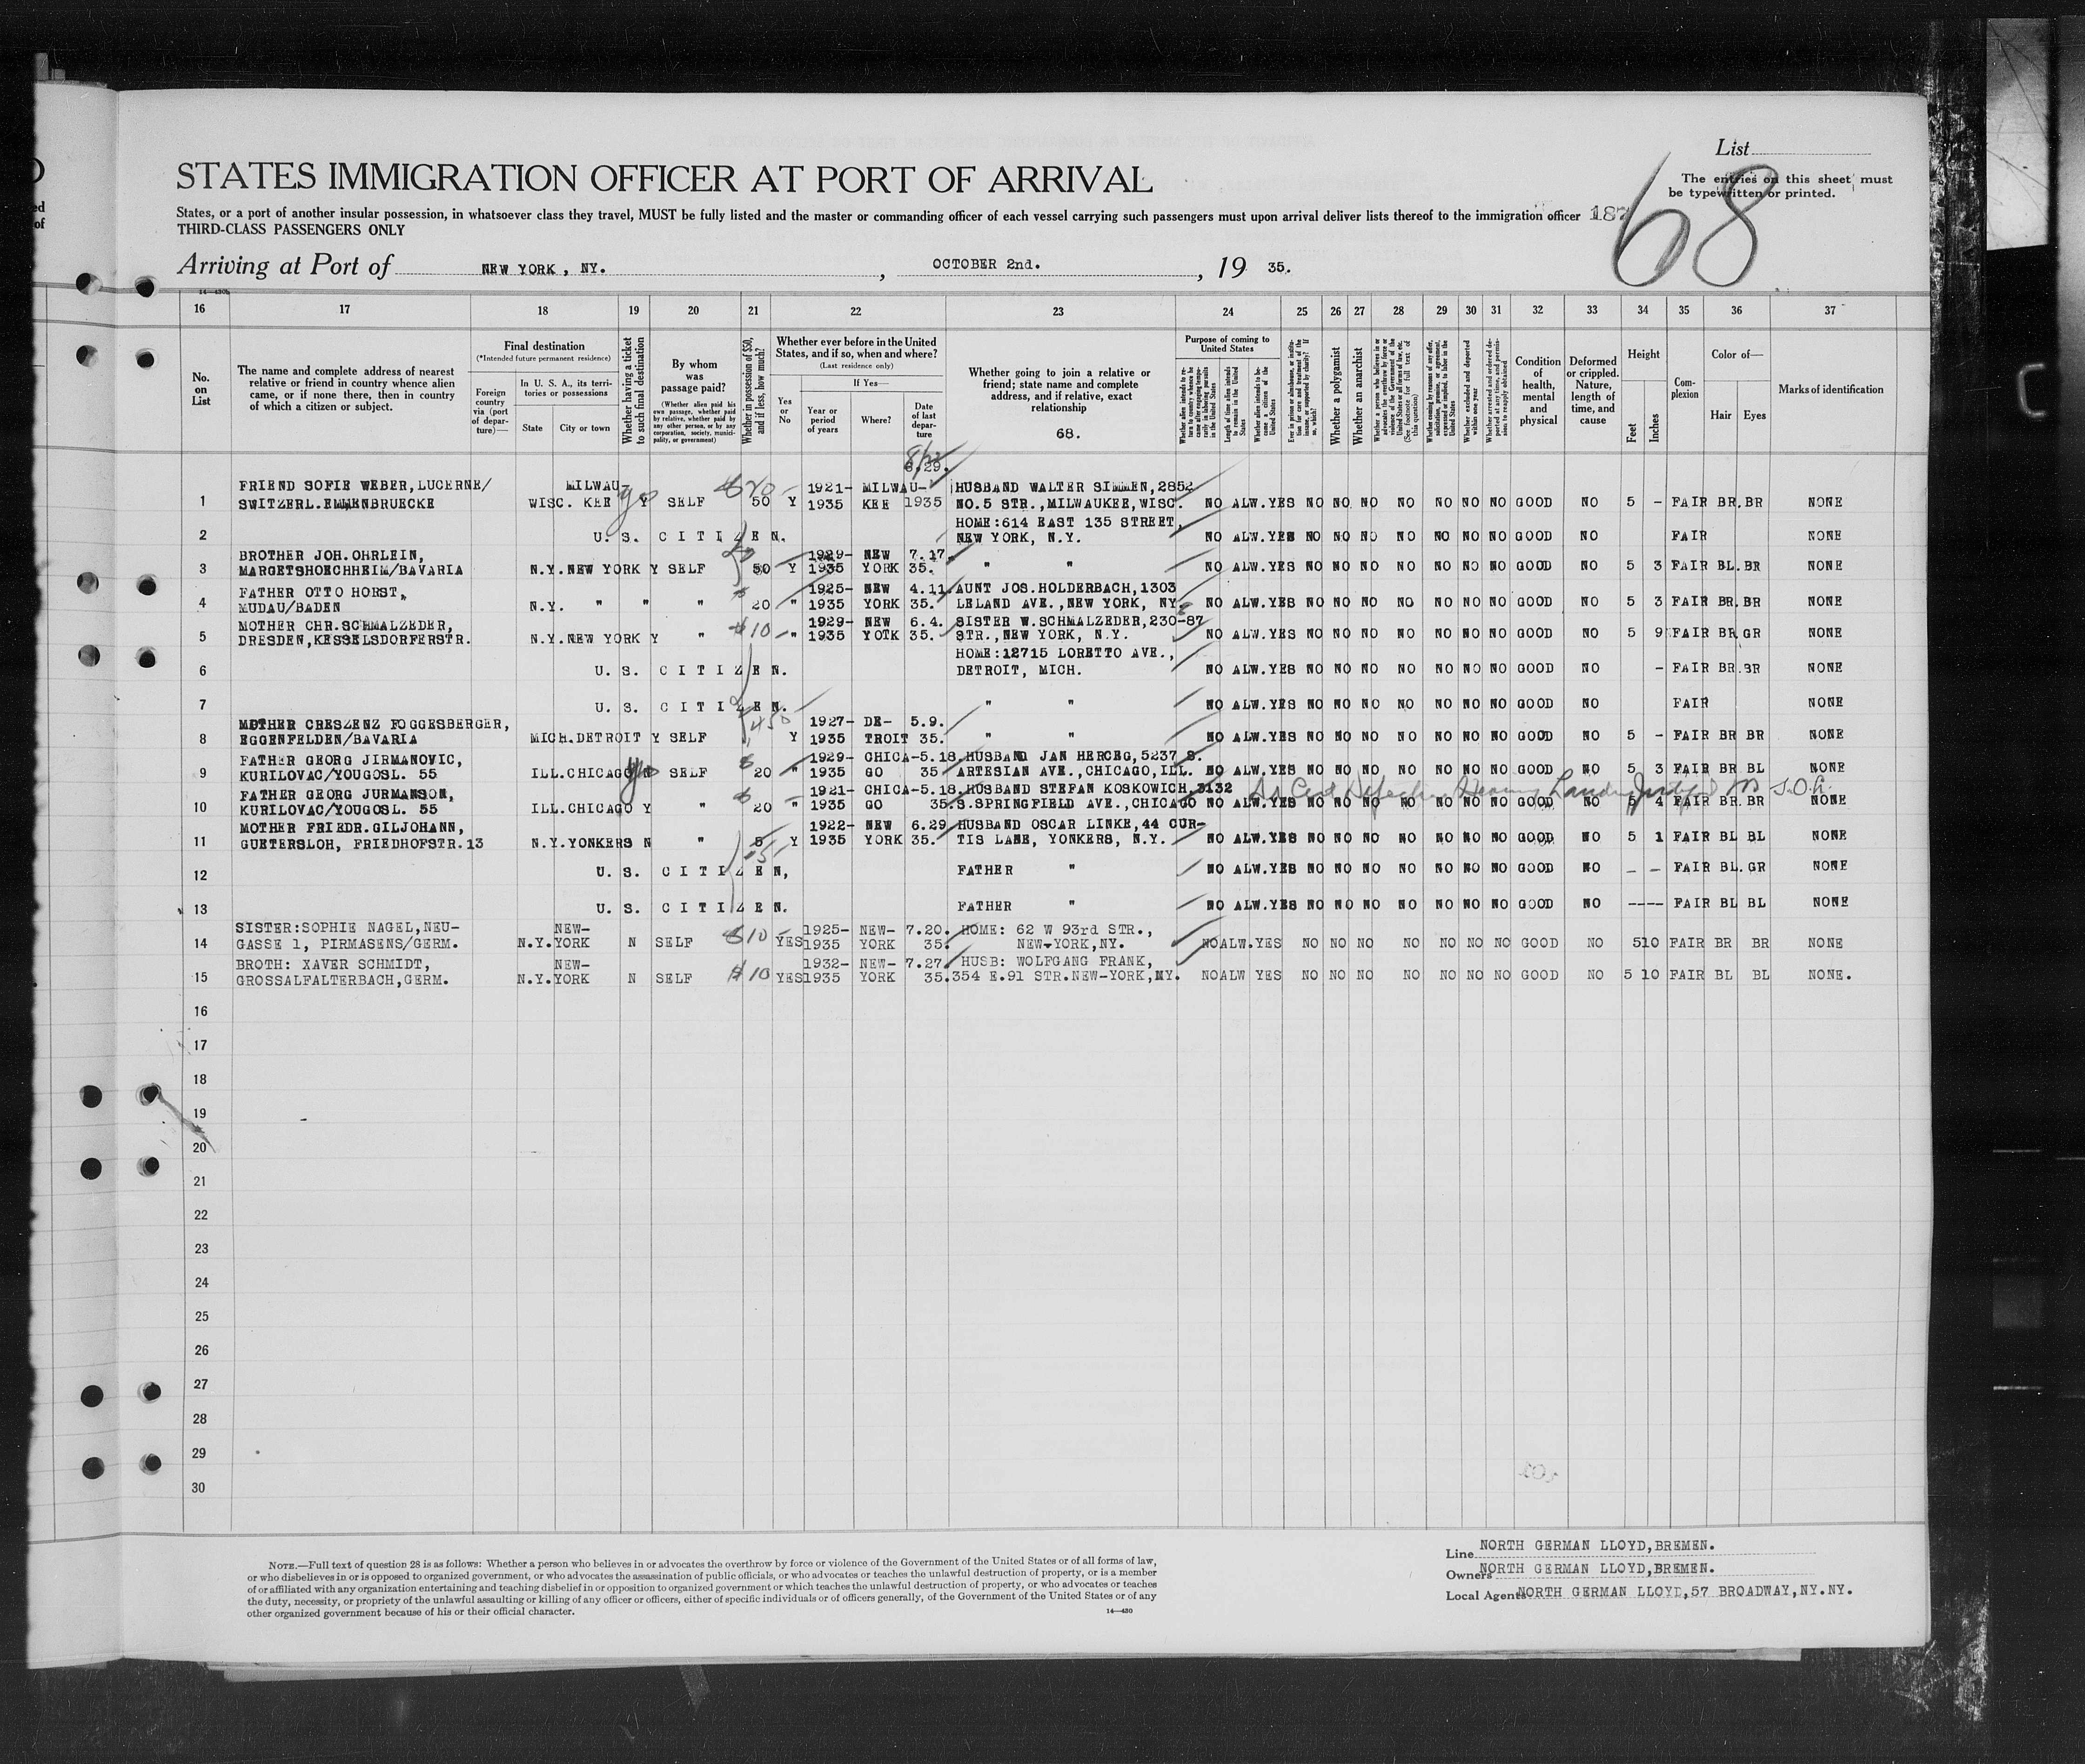 List
The entries on this sheet must
be typewritten or printed.
68
STATES IMMIGRATION OFFICER AT PORT OF ARRIVAL
States, or a port of another insular possession, in whatsoever class they travel, MUST be fully listed and the master or commanding officer of each vessel carrying such passengers must upon arrival deliver lists thereof to the immigration officer 187
THIRD-CLASS PASSENGERS ONLY
Arriving at Port of NEW YORK, NY. , OCTOBER 2nd. , 19 35.
16 17 18 19 20 21 22 23 24 25 26 27 28 29 30 31 32 33 34 35 36 37
No. on List
The name and complete address of nearest relative or friend in country whence alien came, or if none there, then in country of which a citizen or subject.
Final destination
(*Intended future permanent residence)
Foreign country via (port of departure)—
In U. S. A., its territories or possessions
State City or town
Whether having a ticket to such final destination
By whom was passage paid?
(Whether alien paid his own passage, whether paid by relative, whether paid by any other person, or by any corporation, society, municipality, or government)
Whether in possession of $50, and if less, how much?
Whether ever before in the United States, and if so, when and where?
(Last residence only)
Yes or No
If Yes—
Year or period of years
Where?
Date of last departure
Whether going to join a relative or friend; state name and complete address, and if relative, exact relationship
68.
Purpose of coming to United States
Whether a polygamist
Whether an anarchist
Condition of health, mental and physical
Deformed or crippled. Nature, length of time, and cause
Height
Feet Inches
Complexion
Color of—
Hair Eyes
Marks of identification
FRIEND SOFIE WEBER, LUCERNE/ MILWAU- 1921- MILWAU- HUSBAND WALTER SIMMEN, 2852
1 SWITZERL. EMMENBRUECKE WISC. KEE Y SELF 50 Y 1935 KEE 1935 NO. 5 STR., MILWAUKEE, WISC. NO ALW. YES NO NO NO NO NO NO NO GOOD NO 5 - FAIR BR. BR NONE
HOME: 614 EAST 135 STREET,
2 U. S. C I T I Z E N. NEW YORK, N.Y. NO ALW. YES NO NO NO NO NO NO NO GOOD NO FAIR NONE
BROTHER JOH. OHRLEIN, 1929- NEW 7.17.
3 MARGETSHOECHHEIM/BAVARIA N.Y. NEW YORK Y SELF 50 Y 1935 YORK 35. " " NO ALW. YES NO NO NO NO NO NO NO GOOD NO 5 3 FAIR BL. BR NONE
FATHER OTTO HORST, 1925- NEW 4.11. AUNT JOS. HOLDERBACH, 1303
4 MUDAU/BADEN N.Y. " " " 20 " 1935 YORK 35. LELAND AVE., NEW YORK, NY. NO ALW. YES NO NO NO NO NO NO NO GOOD NO 5 3 FAIR BR. BR NONE
MOTHER CHR. SCHMALZEDER, 1929- NEW 6.4. SISTER W. SCHMALZEDER, 230-87
5 DRESDEN, KESSELSDORFERSTR. N.Y. NEW YORK Y " $10 " 1935 YOTK 35. STR., NEW YORK, N.Y. NO ALW. YES NO NO NO NO NO NO NO GOOD NO 5 9 FAIR BR GR NONE
HOME: 12715 LORETTO AVE.,
6 U. S. C I T I Z E N. DETROIT, MICH. NO ALW. YES NO NO NO NO NO NO NO GOOD NO - FAIR BR. BR NONE
7 U. S. C I T I Z E N. " " NO ALW. YES NO NO NO NO NO NO NO GOOD NO FAIR NONE
MOTHER CRESZENZ FOGGESBERGER, 1927- DE- 5.9.
8 EGGENFELDEN/BAVARIA MICH. DETROIT Y SELF Y 1935 TROIT 35. " " NO ALW. YES NO NO NO NO NO NO NO GOOD NO 5 - FAIR BR BR NONE
FATHER GEORG JIRMANOVIC, 1929- CHICA- 5.18. HUSBAND JAN HERCEG, 5237 S.
9 KURILOVAC/YOUGOSL. 55 ILL. CHICAGO SELF 20 " 1935 GO 35 ARTESIAN AVE., CHICAGO, ILL. NO ALW. YES NO NO NO NO NO NO NO GOOD NO 5 3 FAIR BR BL NONE
FATHER GEORG JURMANSON, 1921- CHICA- 5.18. HUSBAND STEFAN KOSKOWICH, 3132
10 KURILOVAC/YOUGOSL. 55 ILL. CHICAGO Y " 20 " 1935 GO 35. S. SPRINGFIELD AVE., CHICAGO NO ALW. YES NO NO NO NO NO NO NO GOOD NO 5 4 FAIR BR. BR NONE
MOTHER FRIEDR. GILJOHANN, 1922- NEW 6.29 HUSBAND OSCAR LINKE, 44 CUR-
11 GUETERSLOH, FRIEDHOFSTR. 13 N.Y. YONKERS N " 5 Y 1935 YORK 35. TIS LANE, YONKERS, N.Y. NO ALW. YES NO NO NO NO NO NO NO GOOD NO 5 1 FAIR BL BL NONE
12 U. S. C I T I Z E N, FATHER " NO ALW. YES NO NO NO NO NO NO NO GOOD NO - - FAIR BL. GR NONE
13 U. S. C I T I Z E N. FATHER " NO ALW. YES NO NO NO NO NO NO NO GOOD NO ---- FAIR BL BL NONE
SISTER: SOPHIE NAGEL, NEU- NEW- 1925- NEW- 7.20. HOME: 62 W 93rd STR.,
14 GASSE 1, PIRMASENS/GERM. N.Y. YORK N SELF $10 YES 1935 YORK 35. NEW-YORK, NY. NO ALW. YES NO NO NO NO NO NO NO GOOD NO 510 FAIR BR BR NONE
BROTH: XAVER SCHMIDT, NEW- 1932- NEW- 7.27. HUSB: WOLFGANG FRANK,
15 GROSSALFALTERBACH, GERM. N.Y. YORK N SELF $10 YES 1935 YORK 35. 354 E. 91 STR. NEW-YORK, NY. NO ALW YES NO NO NO NO NO NO NO GOOD NO 5 10 FAIR BL BL NONE.
16
17
18
19
20
21
22
23
24
25
26
27
28
29
30
NOTE.—Full text of question 28 is as follows: Whether a person who believes in or advocates the overthrow by force or violence of the Government of the United States or of all forms of law,
or who disbelieves in or is opposed to organized government, or who advocates the assassination of public officials, or who advocates or teaches the unlawful destruction of property, or is a member
of or affiliated with any organization entertaining and teaching disbelief in or opposition to organized government or which teaches the unlawful destruction of property, or who advocates or teaches
the duty, necessity, or propriety of the unlawful assaulting or killing of any officer or officers, either of specific individuals or of officers generally, of the Government of the United States or of any
other organized government because of his or their official character.
14—430
Line NORTH GERMAN LLOYD, BREMEN.
Owners NORTH GERMAN LLOYD, BREMEN.
Local Agents NORTH GERMAN LLOYD, 57 BROADWAY, NY. NY.